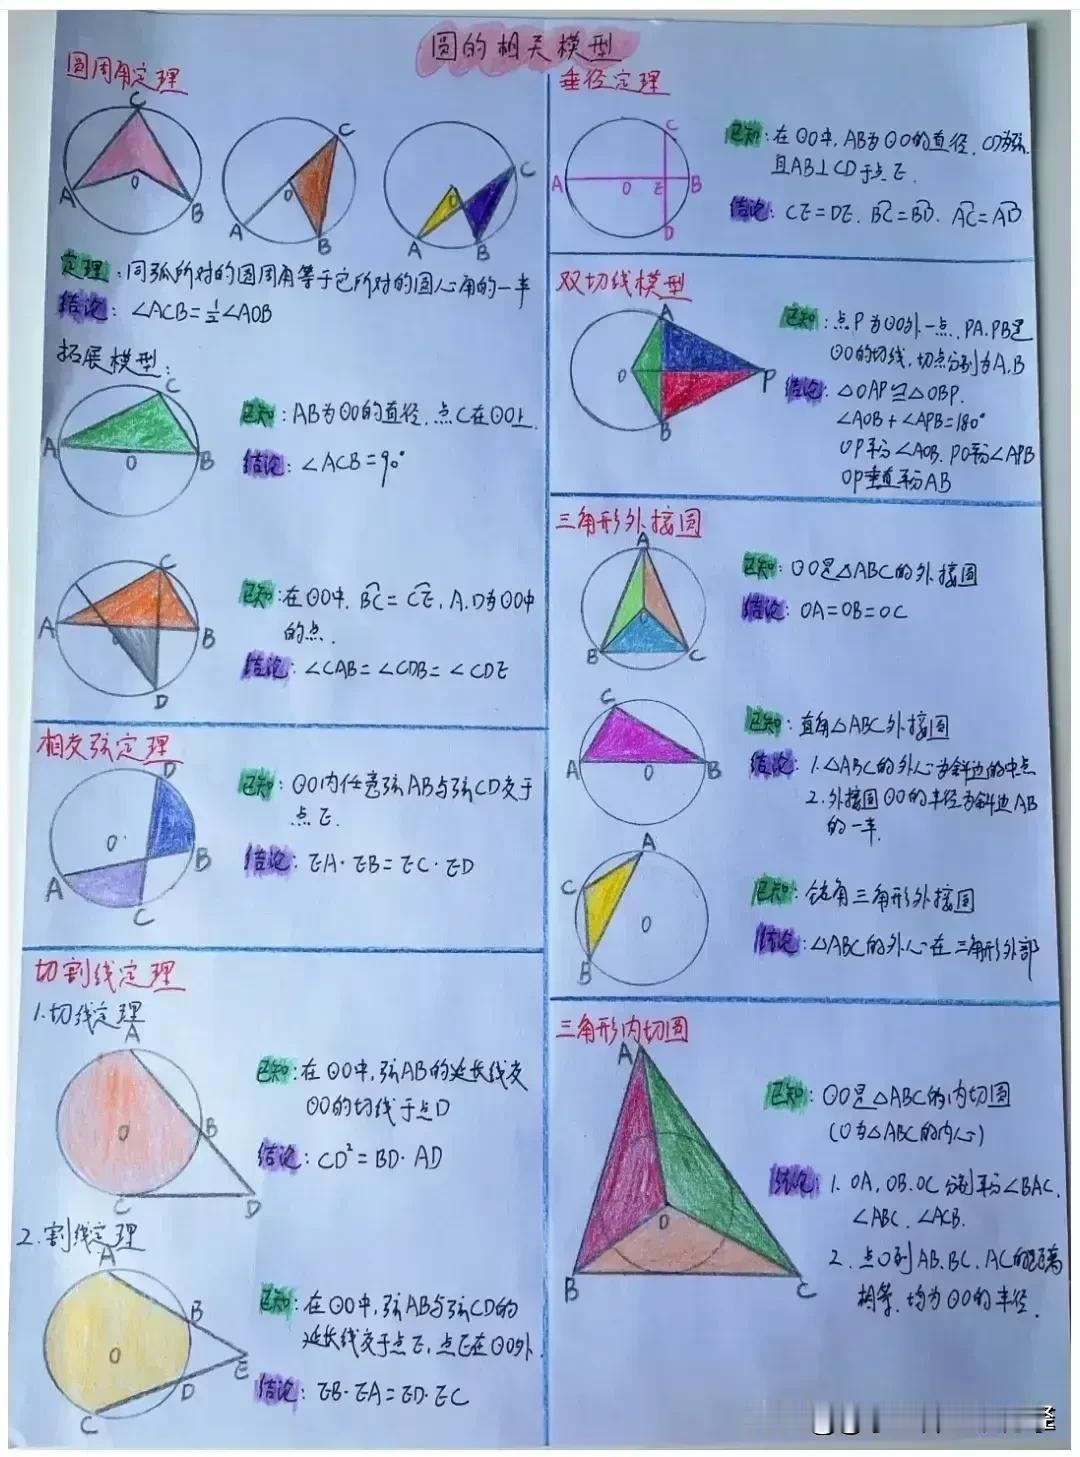 圆的相关模型
圆周角定理
C
O
A
B
C
O
A
B
C
O
A
B
定理：同弧所对的圆周角等于它所对的圆心角的一半
结论：∠ACB=½∠AOB
拓展模型：
C
A
O
B
已知：AB为⊙O的直径，点C在⊙O上.
结论：∠ACB=90°
C
A
B
D
已知：在⊙O中，B͡C=C͡E，A.D为⊙O中
的点.
结论：∠CAB=∠CDB=∠CDE
相交弦定理
D
O
B
A
C
已知：⊙O内任意弦AB与弦CD交于
点E.
结论：EA·EB=EC·ED
切割线定理
1.切线定理
A
O
B
C
D
已知：在⊙O中，弦AB的延长线交
⊙O的切线于点D
结论：CD²=BD·AD
2.割线定理
A
B
O
E
D
C
已知：在⊙O中，弦AB与弦CD的
延长线交于点E，点E在⊙O外.
结论：EB·EA=ED·EC
垂径定理
C
A
O
E
B
D
已知：在⊙O中，AB为⊙O的直径，CD为弦，
且AB⊥CD于点E.
结论：CE=DE. B͡C=B͡D. A͡C=A͡D
双切线模型
A
O
P
B
已知：点P为⊙O外一点，PA.PB是
⊙O的切线，切点分别为A.B
结论：△OAP≌△OBP.
∠AOB+∠APB=180°
OP平分∠AOB. PO平分∠APB
OP垂直平分AB
三角形外接圆
A
O
B
C
已知：⊙O是△ABC的外接圆
结论：OA=OB=OC
C
A
O
B
已知：直角△ABC外接圆
结论：1.△ABC的外心为斜边的中点
2.外接圆⊙O的半径为斜边AB
的一半.
A
C
O
B
已知：钝角三角形外接圆
结论：△ABC的外心在三角形外部
三角形内切圆
A
O
B
C
已知：⊙O是△ABC的内切圆
(O为△ABC的内心)
结论：1. OA，OB.OC分别平分∠BAC.
∠ABC. ∠ACB.
2. 点O到AB.BC. AC的距离
相等，均为⊙O的半径.